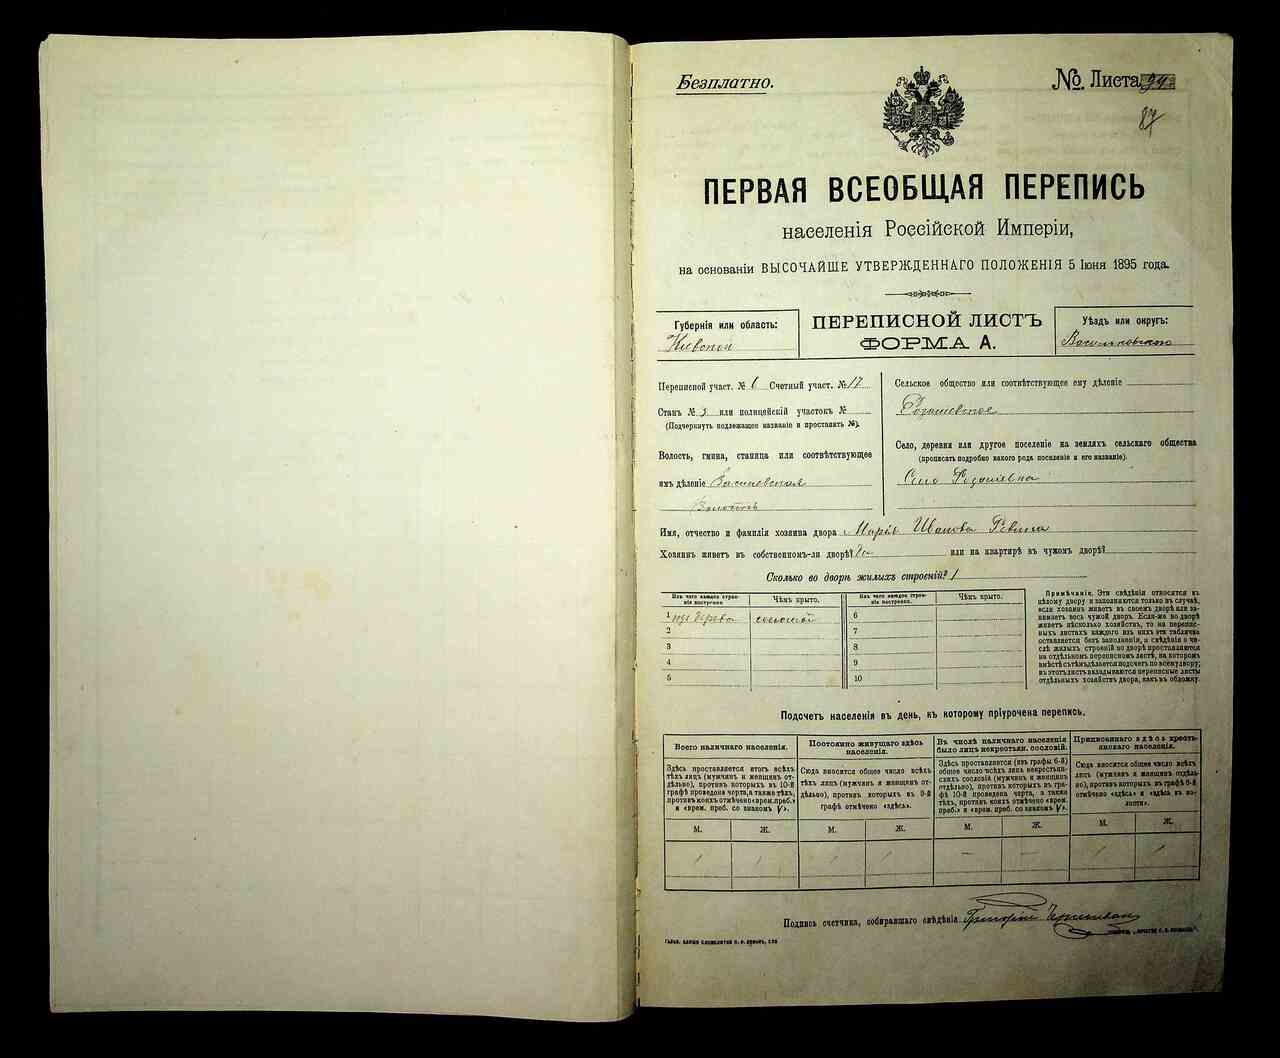 Безплатно.
№ Листа 94
87
ПЕРВАЯ ВСЕОБЩАЯ ПЕРЕПИСЬ
населенія Россійской Имперіи,
на основаніи ВЫСОЧАЙШЕ УТВЕРЖДЕННАГО ПОЛОЖЕНІЯ 5 Іюня 1895 года.
Губернія или область:
Кіевской
ПЕРЕПИСНОЙ ЛИСТЪ
ФОРМА А.
Уѣздъ или округъ:
Васильковскаго
Переписной участ. № 6 Счетный участ. № 17
Станъ № 3 или полицейскій участокъ №
(Подчеркнуть подлежащее названіе и проставить №).
Волость, гмина, станица или соотвѣтствующее
имъ дѣленіе
Волость
Сельское общество или соотвѣтствующее ему дѣленіе
Село, деревня или другое поселеніе на земляхъ сельскаго общества
(прописать подробно какого рода поселеніе и его названіе).
Село
Имя, отчество и фамилія хозяина двора Марія Иванова
Хозяинъ живетъ въ собственномъ-ли дворѣ? Да или на квартирѣ въ чужомъ дворѣ?
Сколько во дворѣ жилыхъ строеній? 1
Изъ чего каждое строе-
ніе построено.
Чѣмъ крыто.
1 изъ дерева соломой
2
3
4
5
Изъ чего каждое строе-
ніе построено.
Чѣмъ крыто.
6
7
8
9
10
Примѣчаніе. Эти свѣдѣнія относятся къ
цѣлому двору и заполняются только въ случаѣ,
если хозяинъ живетъ въ своемъ дворѣ или за-
нимаетъ весь чужой дворъ. Если-же во дворѣ
живетъ нѣсколько хозяйствъ, то на перепис-
ныхъ листахъ каждаго изъ нихъ эта табличка
оставляется безъ заполненія, а свѣдѣнія о чи-
слѣ жилыхъ строеній во дворѣ проставляются
на отдѣльномъ переписномъ листѣ, на которомъ
вмѣстѣ съ тѣмъ дѣлается подсчетъ по всему двору;
въ этотъ листъ вкладываются переписные листы
отдѣльныхъ хозяйствъ двора, какъ въ обложку.
Подсчетъ населенія въ день, къ которому пріурочена перепись.
Всего наличнаго населенія.
Здѣсь проставляется итогъ всѣхъ
тѣхъ лицъ (мужчинъ и женщинъ от-
дѣльно), противъ которыхъ въ 10-й
графѣ проведена черта, а также тѣхъ,
противъ коихъ отмѣчено «врем. преб.»
и «врем. преб. со знакомъ V».
М. Ж.
1 1
Постоянно живущаго здѣсь
населенія.
Сюда вносится общее число всѣхъ
тѣхъ лицъ (мужчинъ и женщинъ от-
дѣльно), противъ которыхъ въ 9-й
графѣ отмѣчено «здѣсь».
М. Ж.
1 1
Въ числѣ наличнаго населенія
было лицъ некрестьян. сословій.
Здѣсь проставляется (изъ графы 6-й)
общее число всѣхъ лицъ некрестьян-
скихъ сословій (мужчинъ и женщинъ
отдѣльно), противъ которыхъ въ гра-
фѣ 10-й проведена черта, а также
тѣхъ, противъ коихъ отмѣчено «врем.
преб.» и «врем. преб. со знакомъ V».
М. Ж.
— —
Приписаннаго здѣсь кресть-
янскаго населенія.
Сюда вносится общее число всѣхъ
лицъ (мужчинъ и женщинъ отдѣль-
но), противъ которыхъ въ графѣ 8-й
отмѣчено «здѣсь» и «здѣсь въ во-
лости».
М. Ж.
1 1
Подпись счетчика, собиравшаго свѣдѣнія Григорій